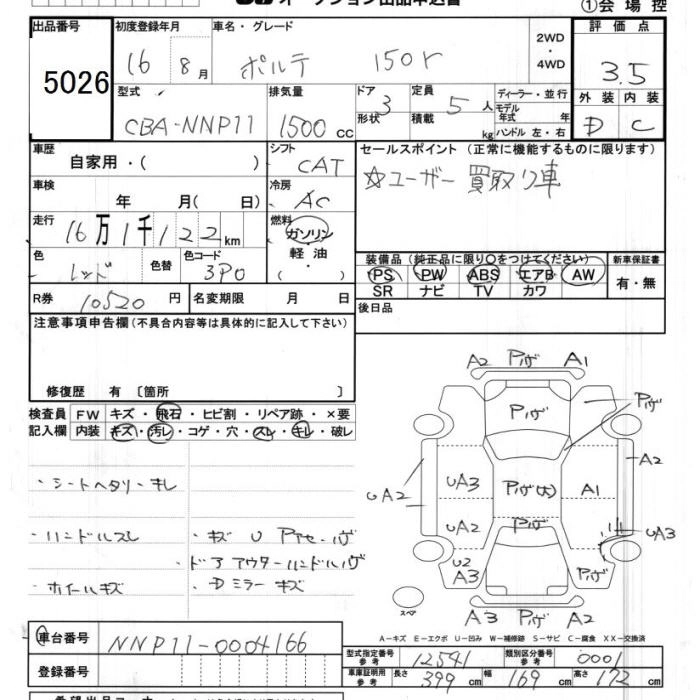 オークション出品申込書
①会場控
出品番号 5026
初度登録年月 16 8月
車名・グレード ポルテ 150r
2WD ・ 4WD
評価点 3.5
外装 内装
D C
型式 CBA-NNP11
排気量 1500cc
ドア 3 形状
定員 5人 積載 kg
ディーラー・並行
モデル年式 年
ハンドル 左・右
車歴 自家用・( )
シフト CAT
セールスポイント (正常に機能するものに限ります)
☆ユーザー買取り車
車検 年 月( 日)
冷房 AC
走行 16万1千122km
燃料 ガソリン 軽油 ・ ( )
色 レッド 色替 色コード 3P0
装備品 (純正品に限り○をつけてください)
PS PW ABS エアB AW
SR ナビ TV カワ
新車保証書 有・無
R券 10520円 名変期限 月 日
後日品
注意事項申告欄 (不具合内容等は具体的に記入して下さい)
修復歴 有 〔箇所 〕
検査員 FW キズ・飛石・ヒビ割・リペア跡・×要
記入欄 内装 キズ・汚レ・コゲ・穴・スレ・キレ・破レ
・シートヘタリ・キレ
・ハンドルスレ
・キズ U Pヤセ・ハゲ
・ドアアウターハンドルハゲ
・ホイールキズ
・Dミラーキズ
A2 Pハゲ A1
Pハゲ Pハゲ
A2
UA3 Pハゲ(大) A1
UA2
UA2 Pハゲ UA3
U2 A3 Pハゲ
スペア
A3 Pハゲ A2
A－キズ E－エクボ U－凹み W－補修跡 S－サビ C－腐食 XX－交換済
車台番号 NNP11-0004166
型式指定番号 参考 12541 類別区分番号 参考 0001
登録番号
車庫証明用 参考 長さ 399cm 幅 169cm 高さ 172cm
希望出品コーナー